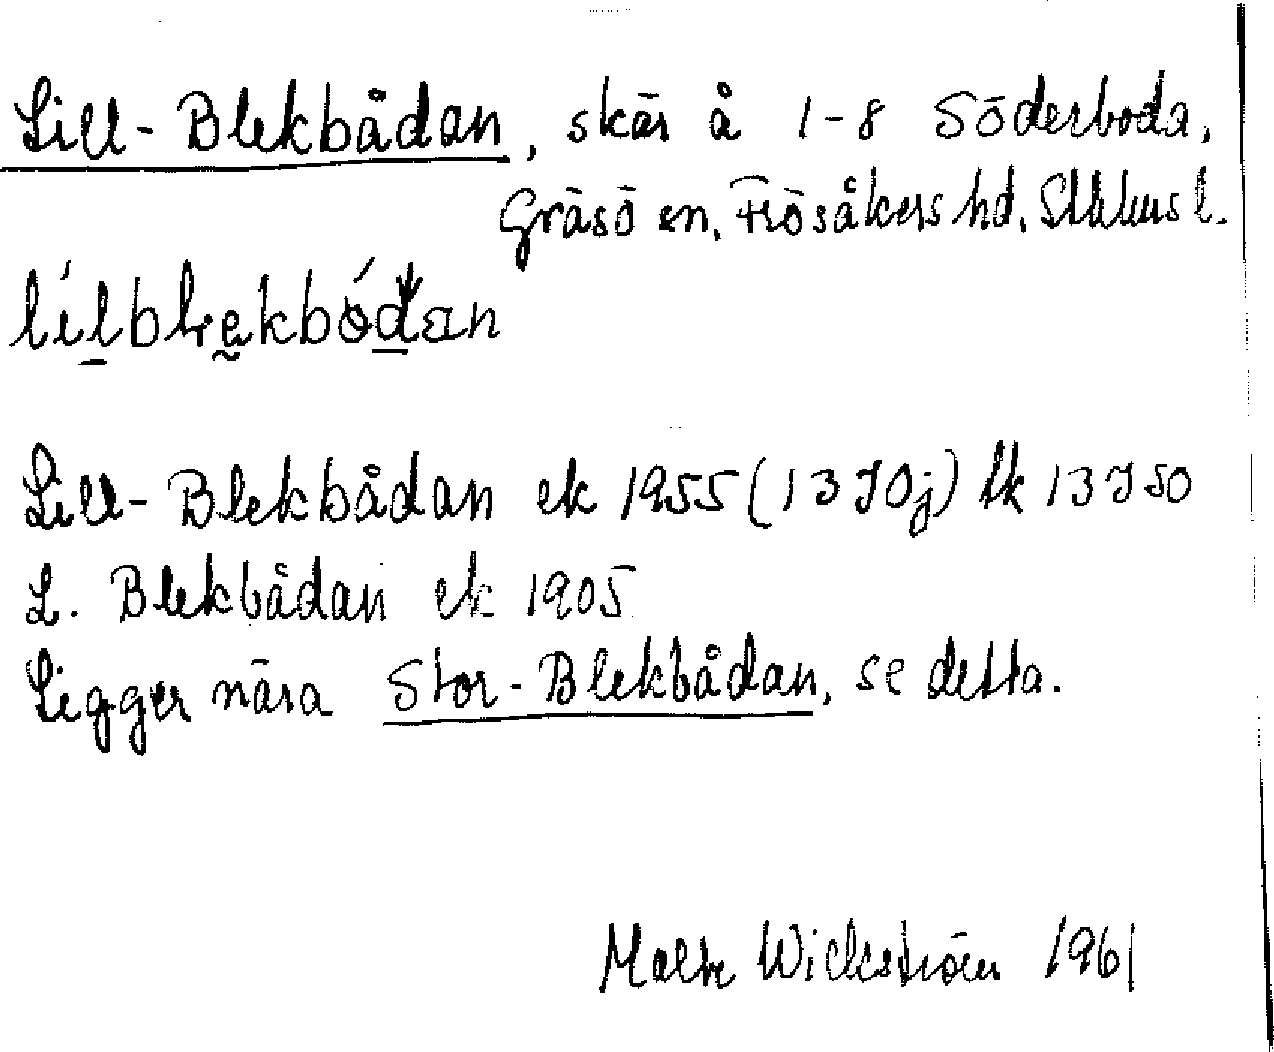 Lill-Blekbådan, skär å 1-8 Söderboda,
Gräsö sn, Frösåkers hd, Sthlms l.
Lill-Blekbådan ek 1955 (13J0j) tk 13J SO
L. Blekbådan ek 1905
Ligger nära Stor-Blekbådan, se detta.
Malte Wickström 1961